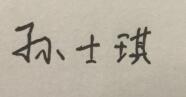 孙士琪